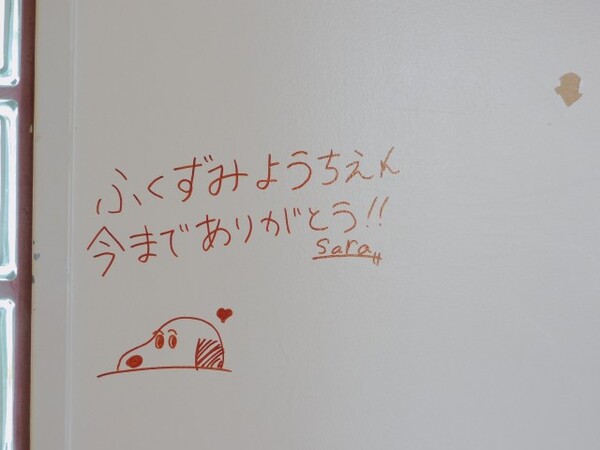 ふくずみようちえん
今までありがとう!!
sara